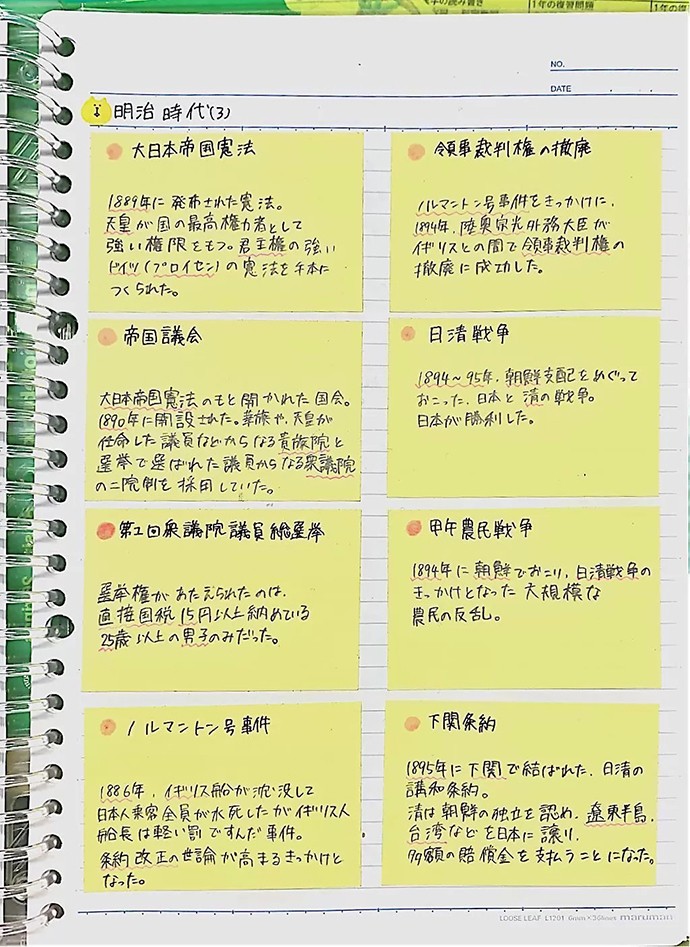 の読み書き
1年の復習問題
1年の復
NO.
DATE
明治時代(3)
大日本帝国憲法
1889年に発布された憲法。
天皇が国の最高権力者として
強い権限をもつ。君主権の強い
ドイツ(プロイセン)の憲法を手本に
つくられた。
帝国議会
大日本帝国憲法のもと開かれた国会。
1890年に開設された。華族や、天皇が
任命した議員などからなる貴族院と
選挙で選ばれた議員からなる衆議院
の二院制を採用していた。
第1回衆議院議員総選挙
選挙権があたえられたのは、
直接国税15円以上納めている
25歳以上の男子のみだった。
ノルマントン号事件
1886年、イギリス船が沈没して
日本人乗客全員が水死したがイギリス人
船長は軽い罰ですんだ事件。
条約改正の世論が高まるきっかけと
なった。
領事裁判権の撤廃
ノルマントン号事件をきっかけに、
1894年、陸奥宗光外務大臣が
イギリスとの間で領事裁判権の
撤廃に成功した。
日清戦争
1894~95年、朝鮮支配をめぐって
おこった、日本と清の戦争。
日本が勝利した。
甲午農民戦争
1894年に朝鮮でおこり、日清戦争の
きっかけとなった大規模な
農民の反乱。
下関条約
1895年に下関で結ばれた、日清の
講和条約。
清は朝鮮の独立を認め、遼東半島、
台湾などを日本に譲り、
多額の賠償金を支払うことになった。
LOOSE LEAF L1201 6mm×36lines maruman